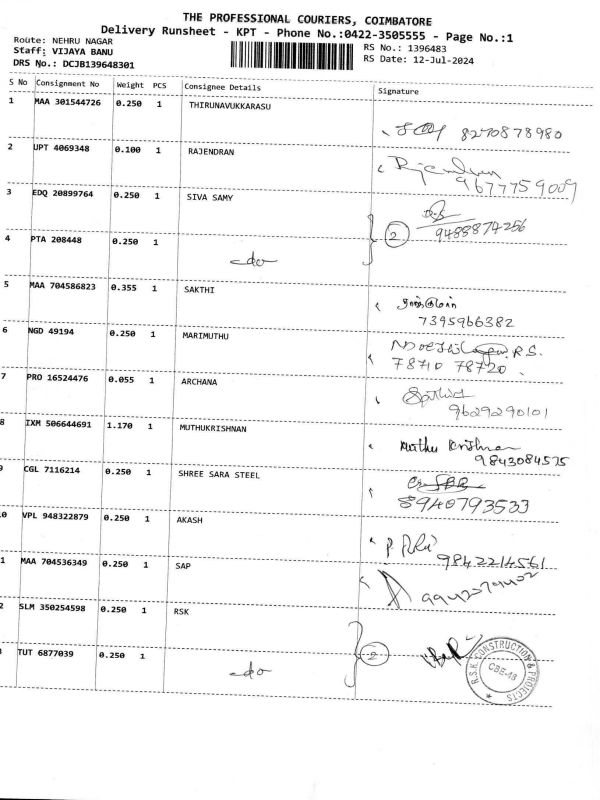 THE PROFESSIONAL COURIERS, COIMBATORE
Delivery Runsheet - KPT - Phone No.:0422-3505555 - Page No.:1
Route: NEHRU NAGAR
Staff: VIJAYA BANU
DRS No.: DCJB139648301
RS No.: 1396483
RS Date: 12-Jul-2024
S No Consignment No Weight PCS Consignee Details Signature
1 MAA 301544726 0.250 1 THIRUNAVUKKARASU
8270878980
2 UPT 4069348 0.100 1 RAJENDRAN
9677759009
3 EDQ 20899764 0.250 1 SIVA SAMY
2 9488874256
4 PTA 208448 0.250 1
-do-
5 MAA 704586823 0.355 1 SAKTHI
7395966382
6 NGD 49194 0.250 1 MARIMUTHU
78710 78720
7 PRO 16524476 0.055 1 ARCHANA
9629290101
8 IXM 506644691 1.170 1 MUTHUKRISHNAN
Muthu Krishnan
9843084575
9 CGL 7116214 0.250 1 SHREE SARA STEEL
8940793533
0 VPL 948322879 0.250 1 AKASH
9842214561
1 MAA 704536349 0.250 1 SAP
2 SLM 350254598 0.250 1 RSK
2
R.S.K. CONSTRUCTION & PROJECTS
CBE-48
3 TUT 6877039 0.250 1
-do-